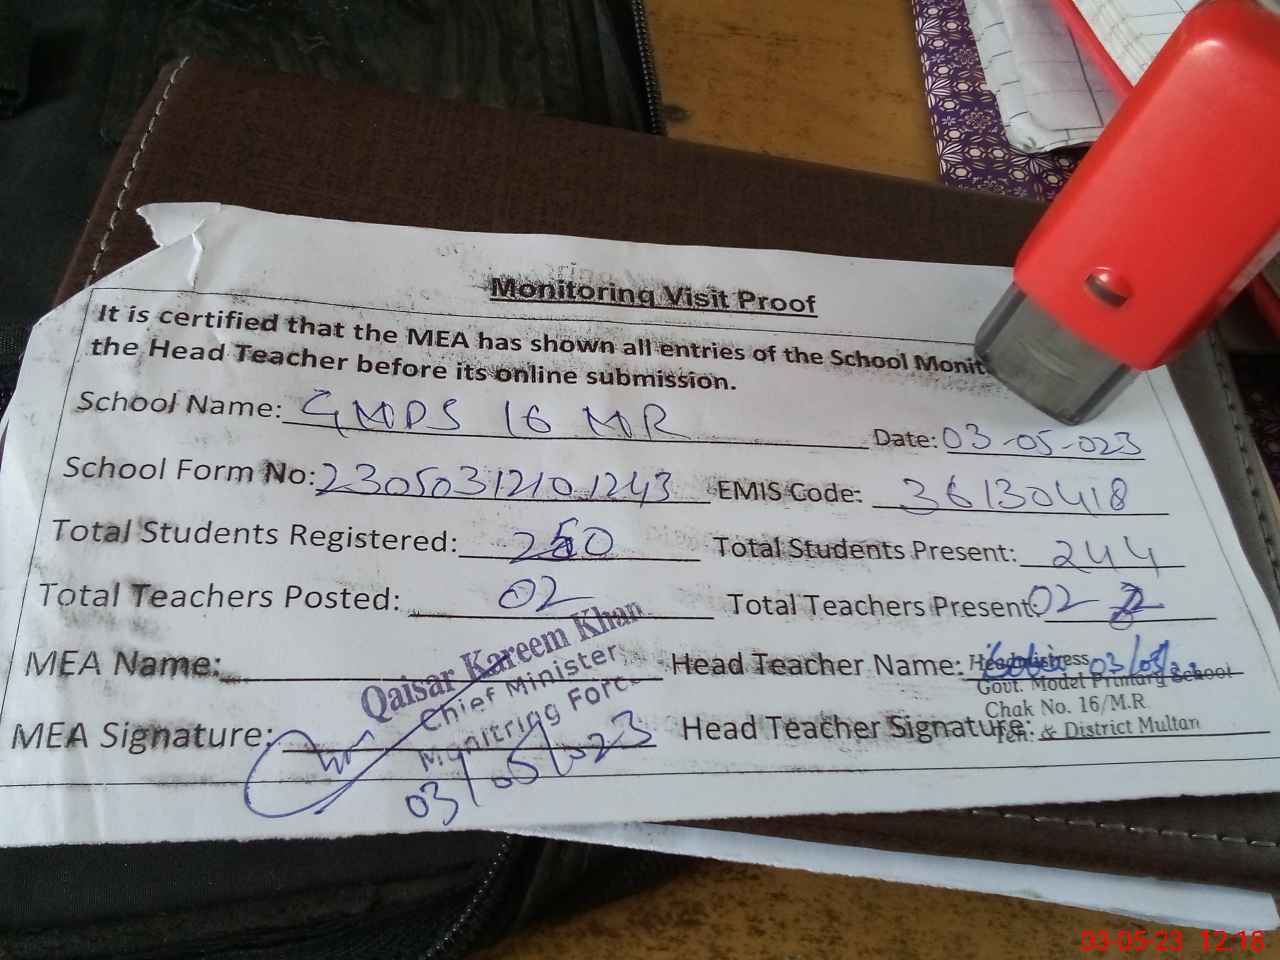 Monitoring Visit Proof
It is certified that the MEA has shown all entries of the School Monit
the Head Teacher before its online submission.
School Name: GMPS 16 MR Date: 03-05-023
School Form No: 23050312101243 EMIS Code: 36130418
Total Students Registered: 250 Total Students Present: 244
Total Teachers Posted: 02 Total Teachers Present: 02 2
MEA Name: Qaisar Kareem Khan Head Teacher Name: Headmistress 03/05/
Chief Minister Govt. Model Primary School
Monitring Force Chak No. 16/M.R
MEA Signature: 03/05/023 Head Teacher Signature: Teh: & District Multan
03-05-23 12:18